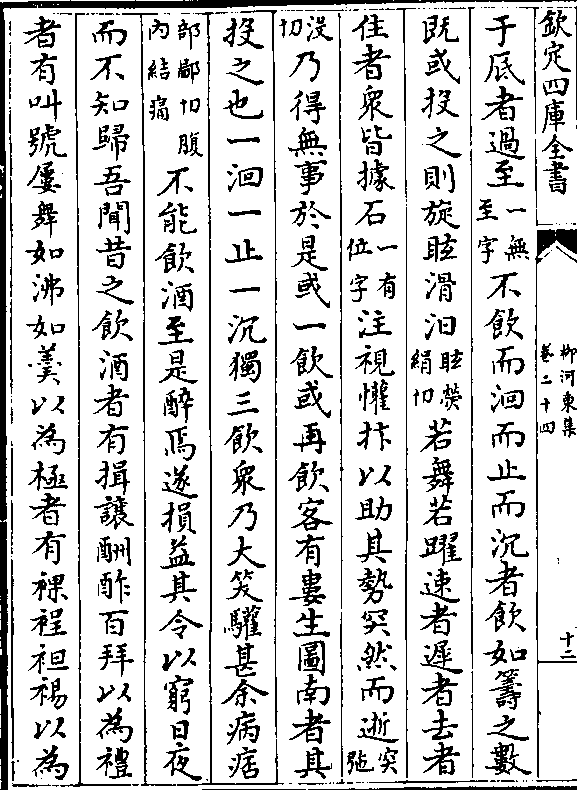 欽定四庫全書
柳河東集
卷二十四
十二
于底者過至一無至字不飲而洄而止而沉者飲如籌之數
既或投之則旋眩滑汩眩熒絹切若舞若躍速者遲者去者
住者衆皆據石一有位字注視懽抃以助其勢突然而逝突
切乃得無事於是或一飲或再飲客有婁生圖南者其
投之也一洄一止一沉獨三飲衆乃大笑驩甚余病痞
部鄙切腹內結痛不能飲酒至是醉焉遂損益其令以窮日夜
而不知歸吾聞昔之飲酒者有揖讓酬酢百拜以為禮
者有叫號屢舞如沸如羹以為極者有裸裎袒裼以為